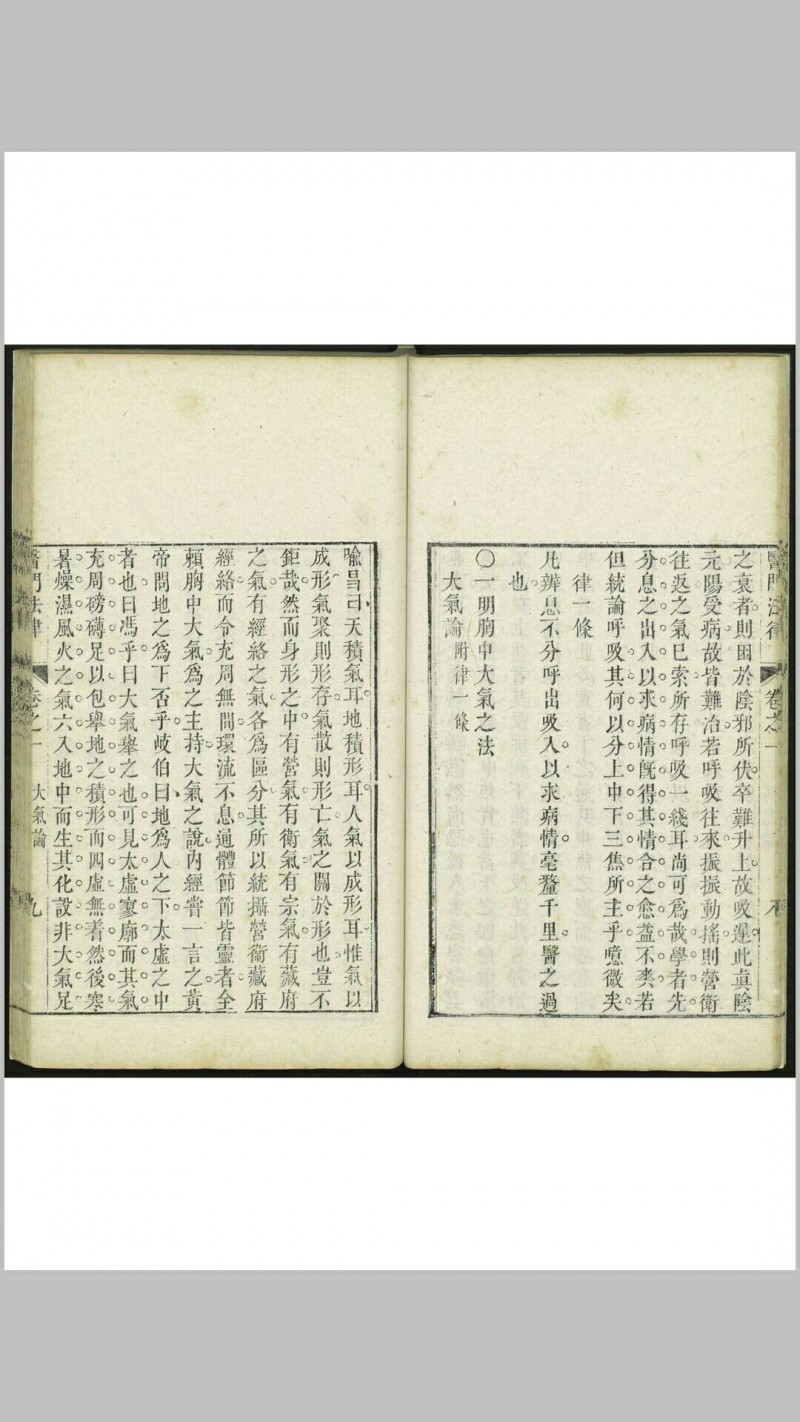 醫門法律 卷之一 八
之衰者則困於陰邪所伏卒難升上故吸遲此真陰
元陽受病故皆難治若呼吸往來振振動搖則營衛
往返之氣已索所存呼吸一綫耳尚可爲哉學者先
分息之出入以求病情旣得其情合之愈益不爽若
但統論呼吸其何以分上中下三焦所主乎噫微矣
律一條
凡辨息不分呼出吸入以求病情毫釐千里醫之過
也
〇一明胸中大氣之法
大氣論附律一條
喻昌曰天積氣耳地積形耳人氣以成形耳惟氣以
成形氣聚則形存氣散則形亡氣之關於形也豈不
鉅哉然而身形之中有營氣有衛氣有宗氣有藏府
之氣有經絡之氣各爲區分其所以統攝營衞藏府
經絡而令充周無間環流不息通體節節皆靈者全
賴胸中大氣爲之主持大氣之說內經嘗一言之黃
帝問地之爲下否乎岐伯曰地爲人之下太虛之中
者也曰馮乎曰大氣舉之也可見太虛寥廓而其氣
充周磅礴足以包舉地之積形而四虛無着然後寒
暑燥濕風火之氣六入地中而生其化設非大氣足
醫門法律 卷之一 大氣論 九